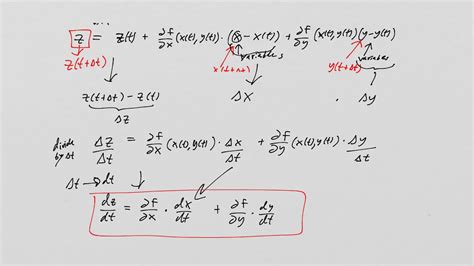 z = z(t) + ∂f/∂x (x(t), y(t)) · (x - x(t)) + ∂f/∂y (x(t), y(t)) (y - y(t))
variables variables
z(t+Δt) x(t+Δt) y(t+Δt)
z(t+Δt) - z(t) Δx · Δy
Δz
divide by Δt Δz/Δt = ∂f/∂x (x(t), y(t)) · Δx/Δt + ∂f/∂y (x(t), y(t)) · Δy/Δt
Δt → dt
dz/dt = ∂f/∂x · dx/dt + ∂f/∂y · dy/dt